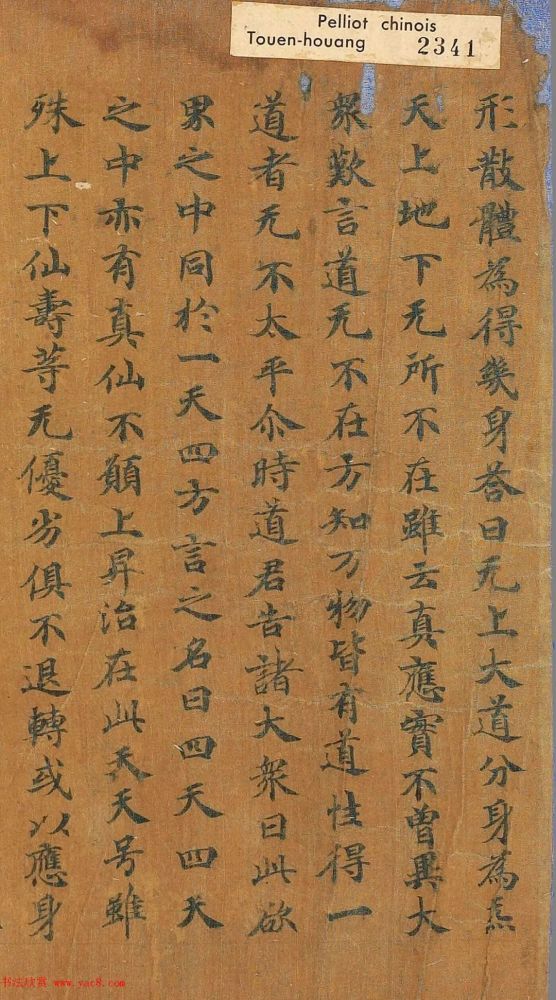 Pelliot chinois
Touen-houang 2341
形散體為得幾身荅曰无上大道分身為炁
天上地下无所不在雖云真應實不曽異大
衆歎言道无不在方知万物皆有道性得一
道者无不太平尒時道君告諸大衆曰此欲
界之中同於一天四方言之名曰四天四天
之中亦有真仙不願上昇治在此天天号雖
殊上下仙壽等无優劣俱不退轉或以應身
书法欣赏 www.yac8.com